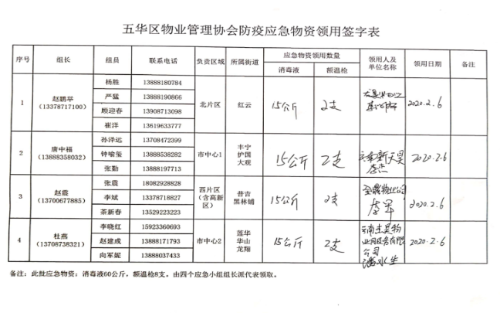 五华区物业管理协会防疫应急物资领用签字表
序号 组长 组员 联系电话 负责区域 所属街道 应急物资领用数量 领用人及单位名称 领用日期 备注
消毒液 额温枪
1 赵鹏平 (13378717100) 杨艳 13888180784 北片区 红云 15公斤 2支 2020.2.6
严猛 13888190866
殷迎春 13908713098
崔洋 13619633777
2 唐中稳 (13888358032) 孙泽远 13708474399 市中心1 丰宁 护国 大观 15公斤 2支 2020.2.6
钟瑜莹 13888538282
张勤 13888197713
3 赵震 (13700677885) 张震 18082928828 西片区(含高新区) 普吉 黑林铺 15公斤 2支 2020.2.6
李斌 13378718827
茶新春 13529223223
4 杜燕 (13708738321) 李晓红 15923360693 市中心2 莲华 华山 龙翔 15公斤 2支 2020.2.6
赵建成 13888171793
向军妮 13888037433
备注:此批应急物资:消毒液60公斤,额温枪8支。由四个应急小组组长派代表领取。